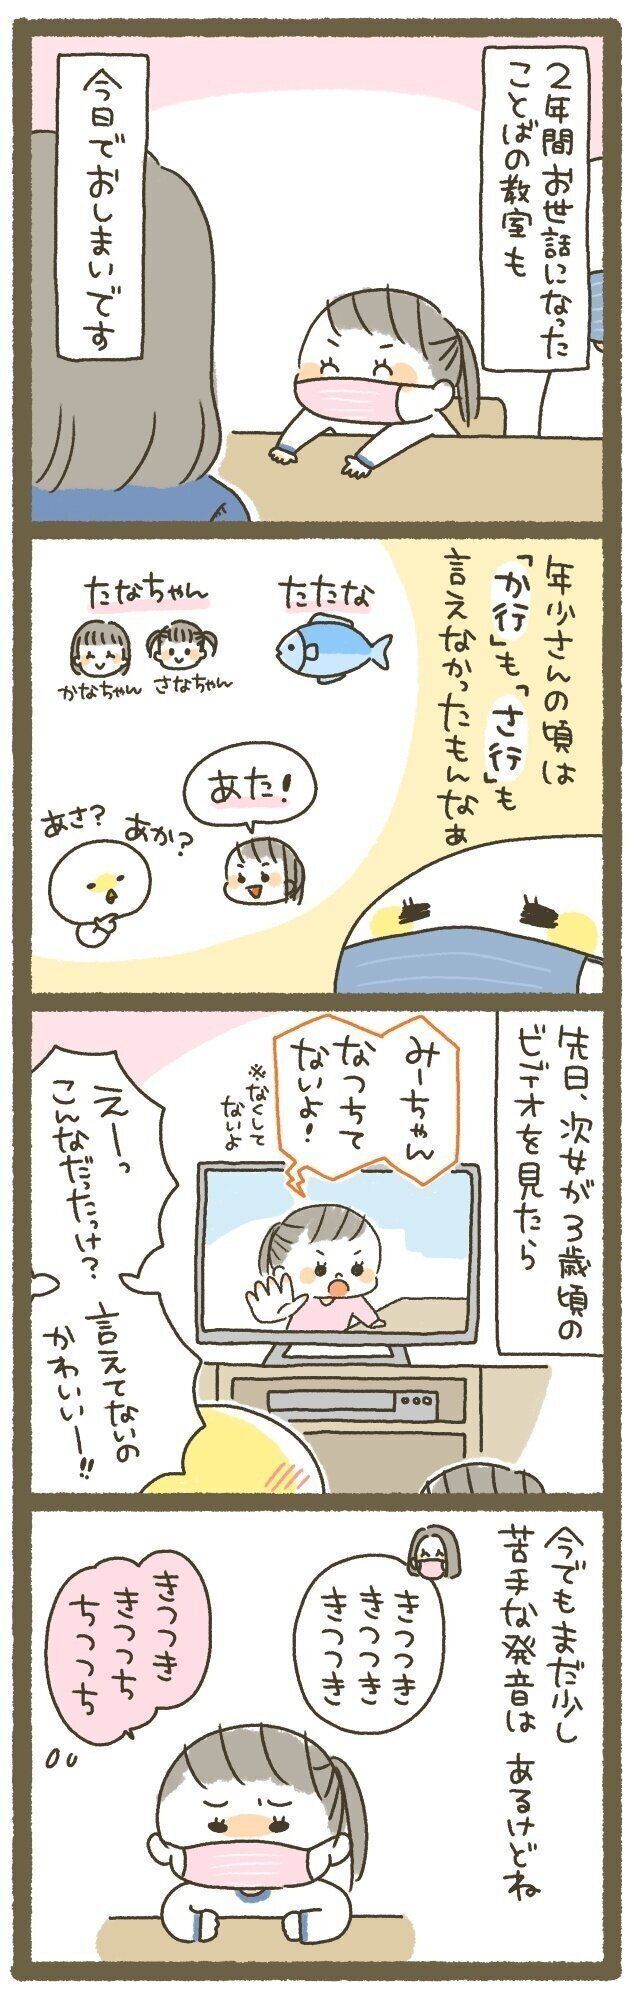 2年間お世話になった
ことばの教室も
今日でおしまいです
年少さんの頃は
「か行」も「さ行」も
言えなかったもんなぁ
たたな
たなちゃん
かなちゃん
さなちゃん
あた!
あか?
あさ?
先日、次女が3歳頃の
ビデオを見たら
みーちゃん
なつちて
ないよ!
※なくして
ないよ
えーっ
こんなだったっけ?
言えてないの
かわいいー!!
今でもまだ少し
苦手な発音は あるけどね
きつつき
きつつき
きつつき
きつつき
きつつち
ちつつち